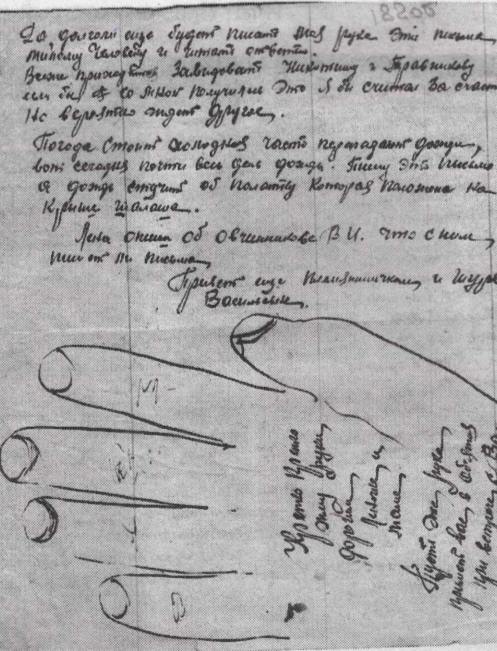 18200
Да долголи еще будет писать моя рука эти письма
милому человеку и читать ответы.
Всем приходится завидовать Никитину и Травникову
если бы со мной получилось это я бы считал за счастье
Но вероятно ждет другое.
Погода стоит холодная часто перепадают дожди,
вот сегодня почти весь день дождь. Пишу это письмо
а дождь стучит об палатку которая положена на
крыше шалаша.
Лена опиши об Овчинникове В.И. что с ним,
пишет ли письма,
Привет еще племянничкам и Шуре
Васильевне.
Крепко крепко
жму руки,
дорогие
и
мама.
Пусть эта рука
примет вас в объятья
при встрече с Ва